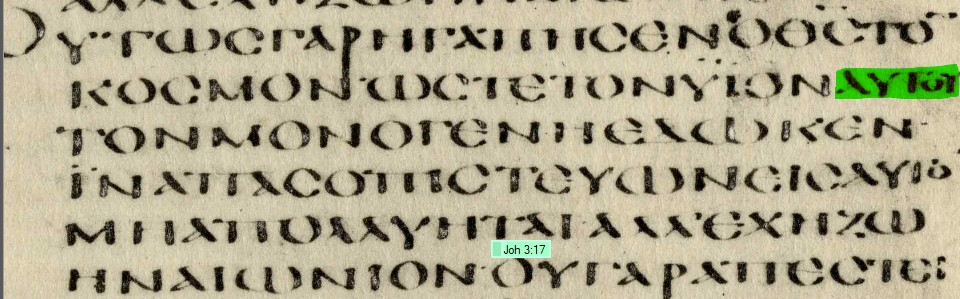 ΟΥΤΩϹΓΑΡΗΓΑΠΗϹΕΝΟΘϹΤΟ̅
ΚΟϹΜΟΝΩϹΤΕΤΟΝΥΪΟΝΑΥΤΟΥ
ΤΟΝΜΟΝΟΓΕΝΗΕΔΩΚΕΝ
ΪΝΑΠΑϹΟΠΙϹΤΕΥΩΝΕΙϹΑΥΤΟ̅
ΜΗΑΠΟΛΛΥΗΤΑΙΑΛΛΕΧΗΖΩ
Joh 3:17
ΗΝΑΙΩΝΙΟΝΟΥΓΑΡΑΠΕϹΤΕΙ